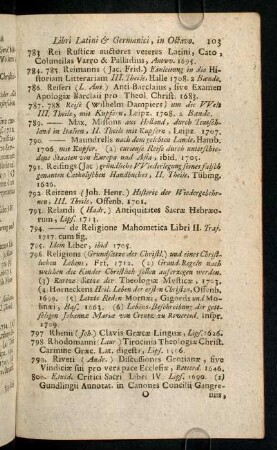 Libri Latini & Germanici, in Octavo. 103
783 Rei Rusticæ auctores veteres Latini, Cato,
Columellas Varro & Palladius, Antvv. 1695.
784. 785. Reimanns (Jac. Frid.) Einleitung in die Hi-
storiam Litterariam III. Theile. Halle 1708. 2 Bænde.
786. Reiseri (L. Ant.) Anti-Barclaius, sive Examen
Apologiæ Barclaii pro Theol. Christ. 1683.
787. 788 Reise (Wilhelm Dampiers) um die VVelt
III. Theile, mit Kupfern, Leipz. 1708. 2 Bænde.
789. — Max. Missons aus Holland, durch Teutsch-
land in Italien, II. Theile mit Kupfern, Leipz. 1707.
790. — Maundrells nach dem gelobten Lande, Hamb.
1706. mit Kupfer. (2) curieuse Reise durch unterschie-
dene Staaten von Europa und Asia, ibid. 1705.
791. Reihings (Jac.) gründliche Wiederlegung seiner falsch
genanten Catholischen Handbücher, II. Theile, Tübing.
1626.
792 Reitzens (Joh. Henr.) Historie der Wiedergebohr-
nen, III. Theile, Offenb. 1701.
793. Relandi (Hadr.) Antiquitates Sacræ Hebræo-
rum, Lipf. 1713.
794. — de Religione Mahometica Libri II. Traj.
1717. cum fig.
795. Idem Liber, ibid 1705.
796 Religions (Grundsätze der Christl.) und eines Christ-
lichen Lebens, Frf. 1712. (2) Grund-Regeln nach
welchen die Kinder Christlich sollen auferzogen werden.
(3) Kurtze Sätze der Theologiæ Mysticæ, 1703.
(4) Horneckens Bild. Leben der ersten Christen, Offenb.
1690. (5) Letzte Reden Mornæi, Gigords und Mo-
linæi, Baf. 1665. (6) Lebens-Beschreibung der gott-
seligen Johannæ Mariæ von Creutz zu Reuereul, impr.
1709.
797 Rhenii (Joh.) Clavis Græcæ Linguæ, Lipf. 1626.
798 Rhodomanni (Laur.) Tirocinia Theologiæ Christ.
Carmine Græc. Lat. digesta, Lipf. 1596.
799. Riveti (Andr.) Discussiones Grotianæ, sive
Vindiciæ sui pro vera pace Ecclesiæ, Roterd. 1646.
800. Ejusd. Critici Sacri Libri IV. Lipf. 1690. (2)
Gundlingii Annotat. in Canones Concilii Gangre-
O nsis,